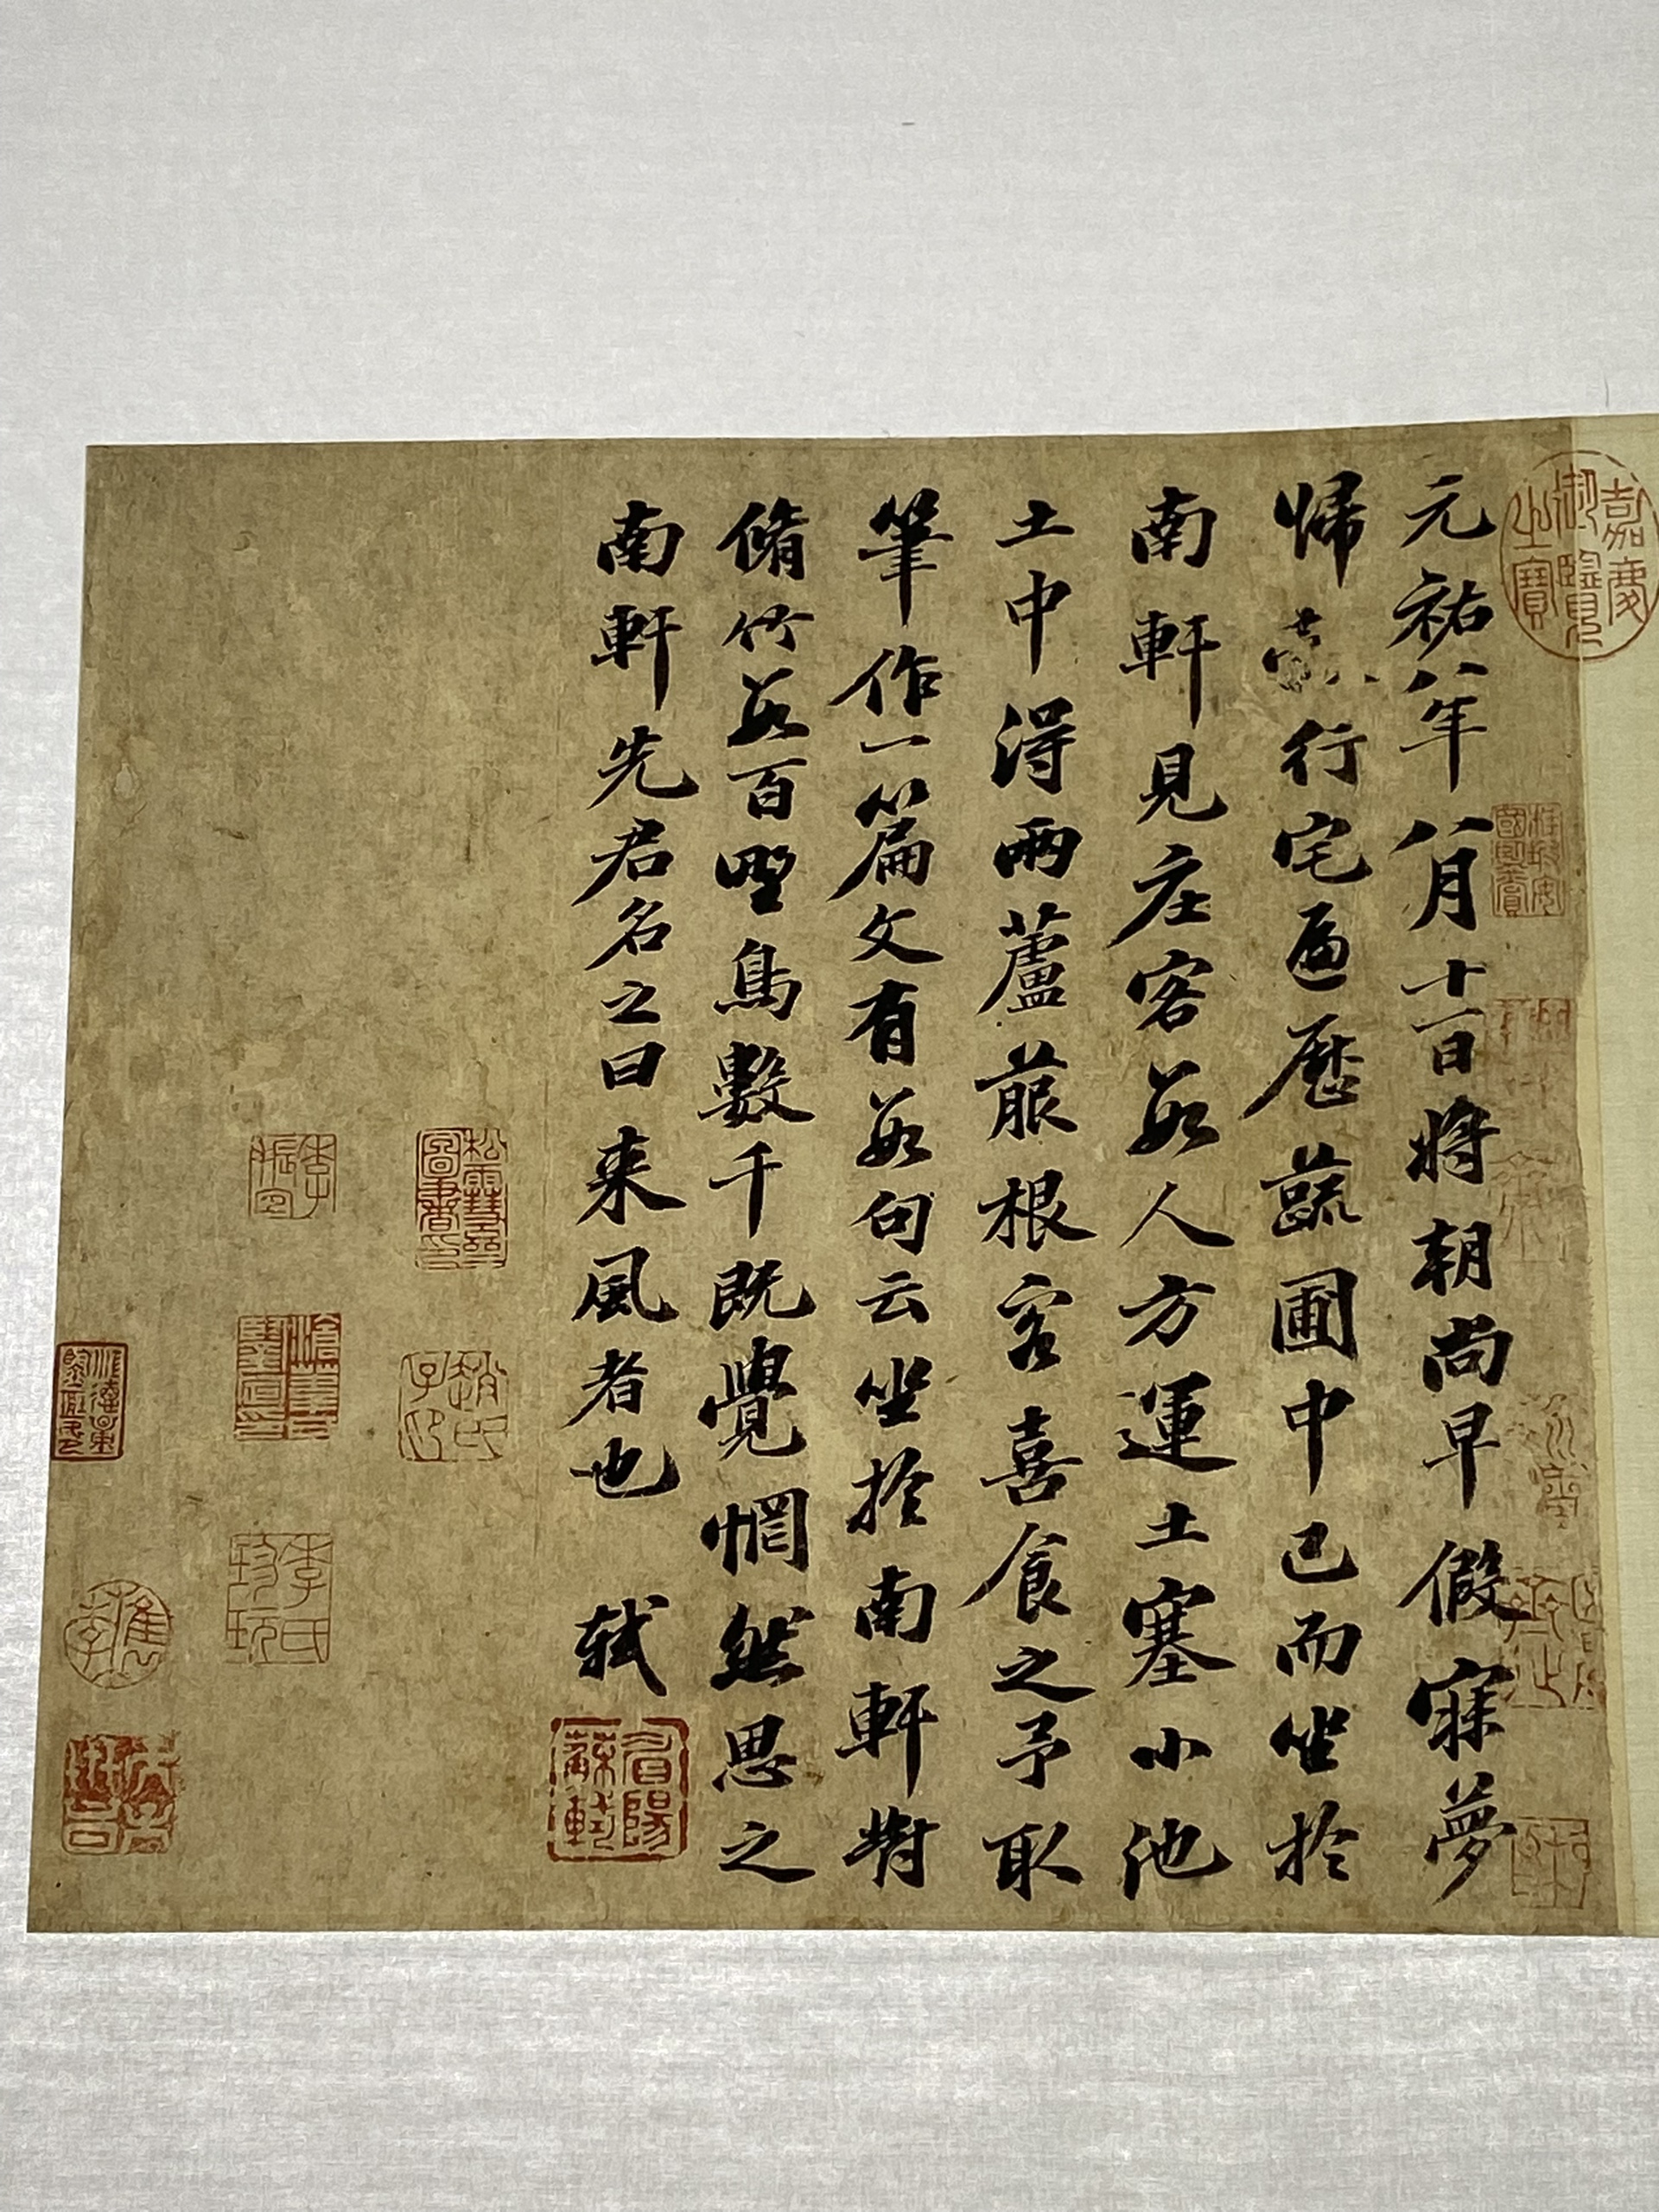 嘉慶御覽之寶
元祐八年八月十一日將朝尚早假寐夢
歸行宅遍歷蔬圃中已而坐於
南軒見庄客數人方運土塞小池
土中得兩蘆菔根客喜食之予取
筆作一篇文有數句云坐於南軒對
脩竹數百野鳥數千既覺惘然思之
南軒先君名之曰来風者也 軾
眉陽蘇軾
松雪齋圖書印